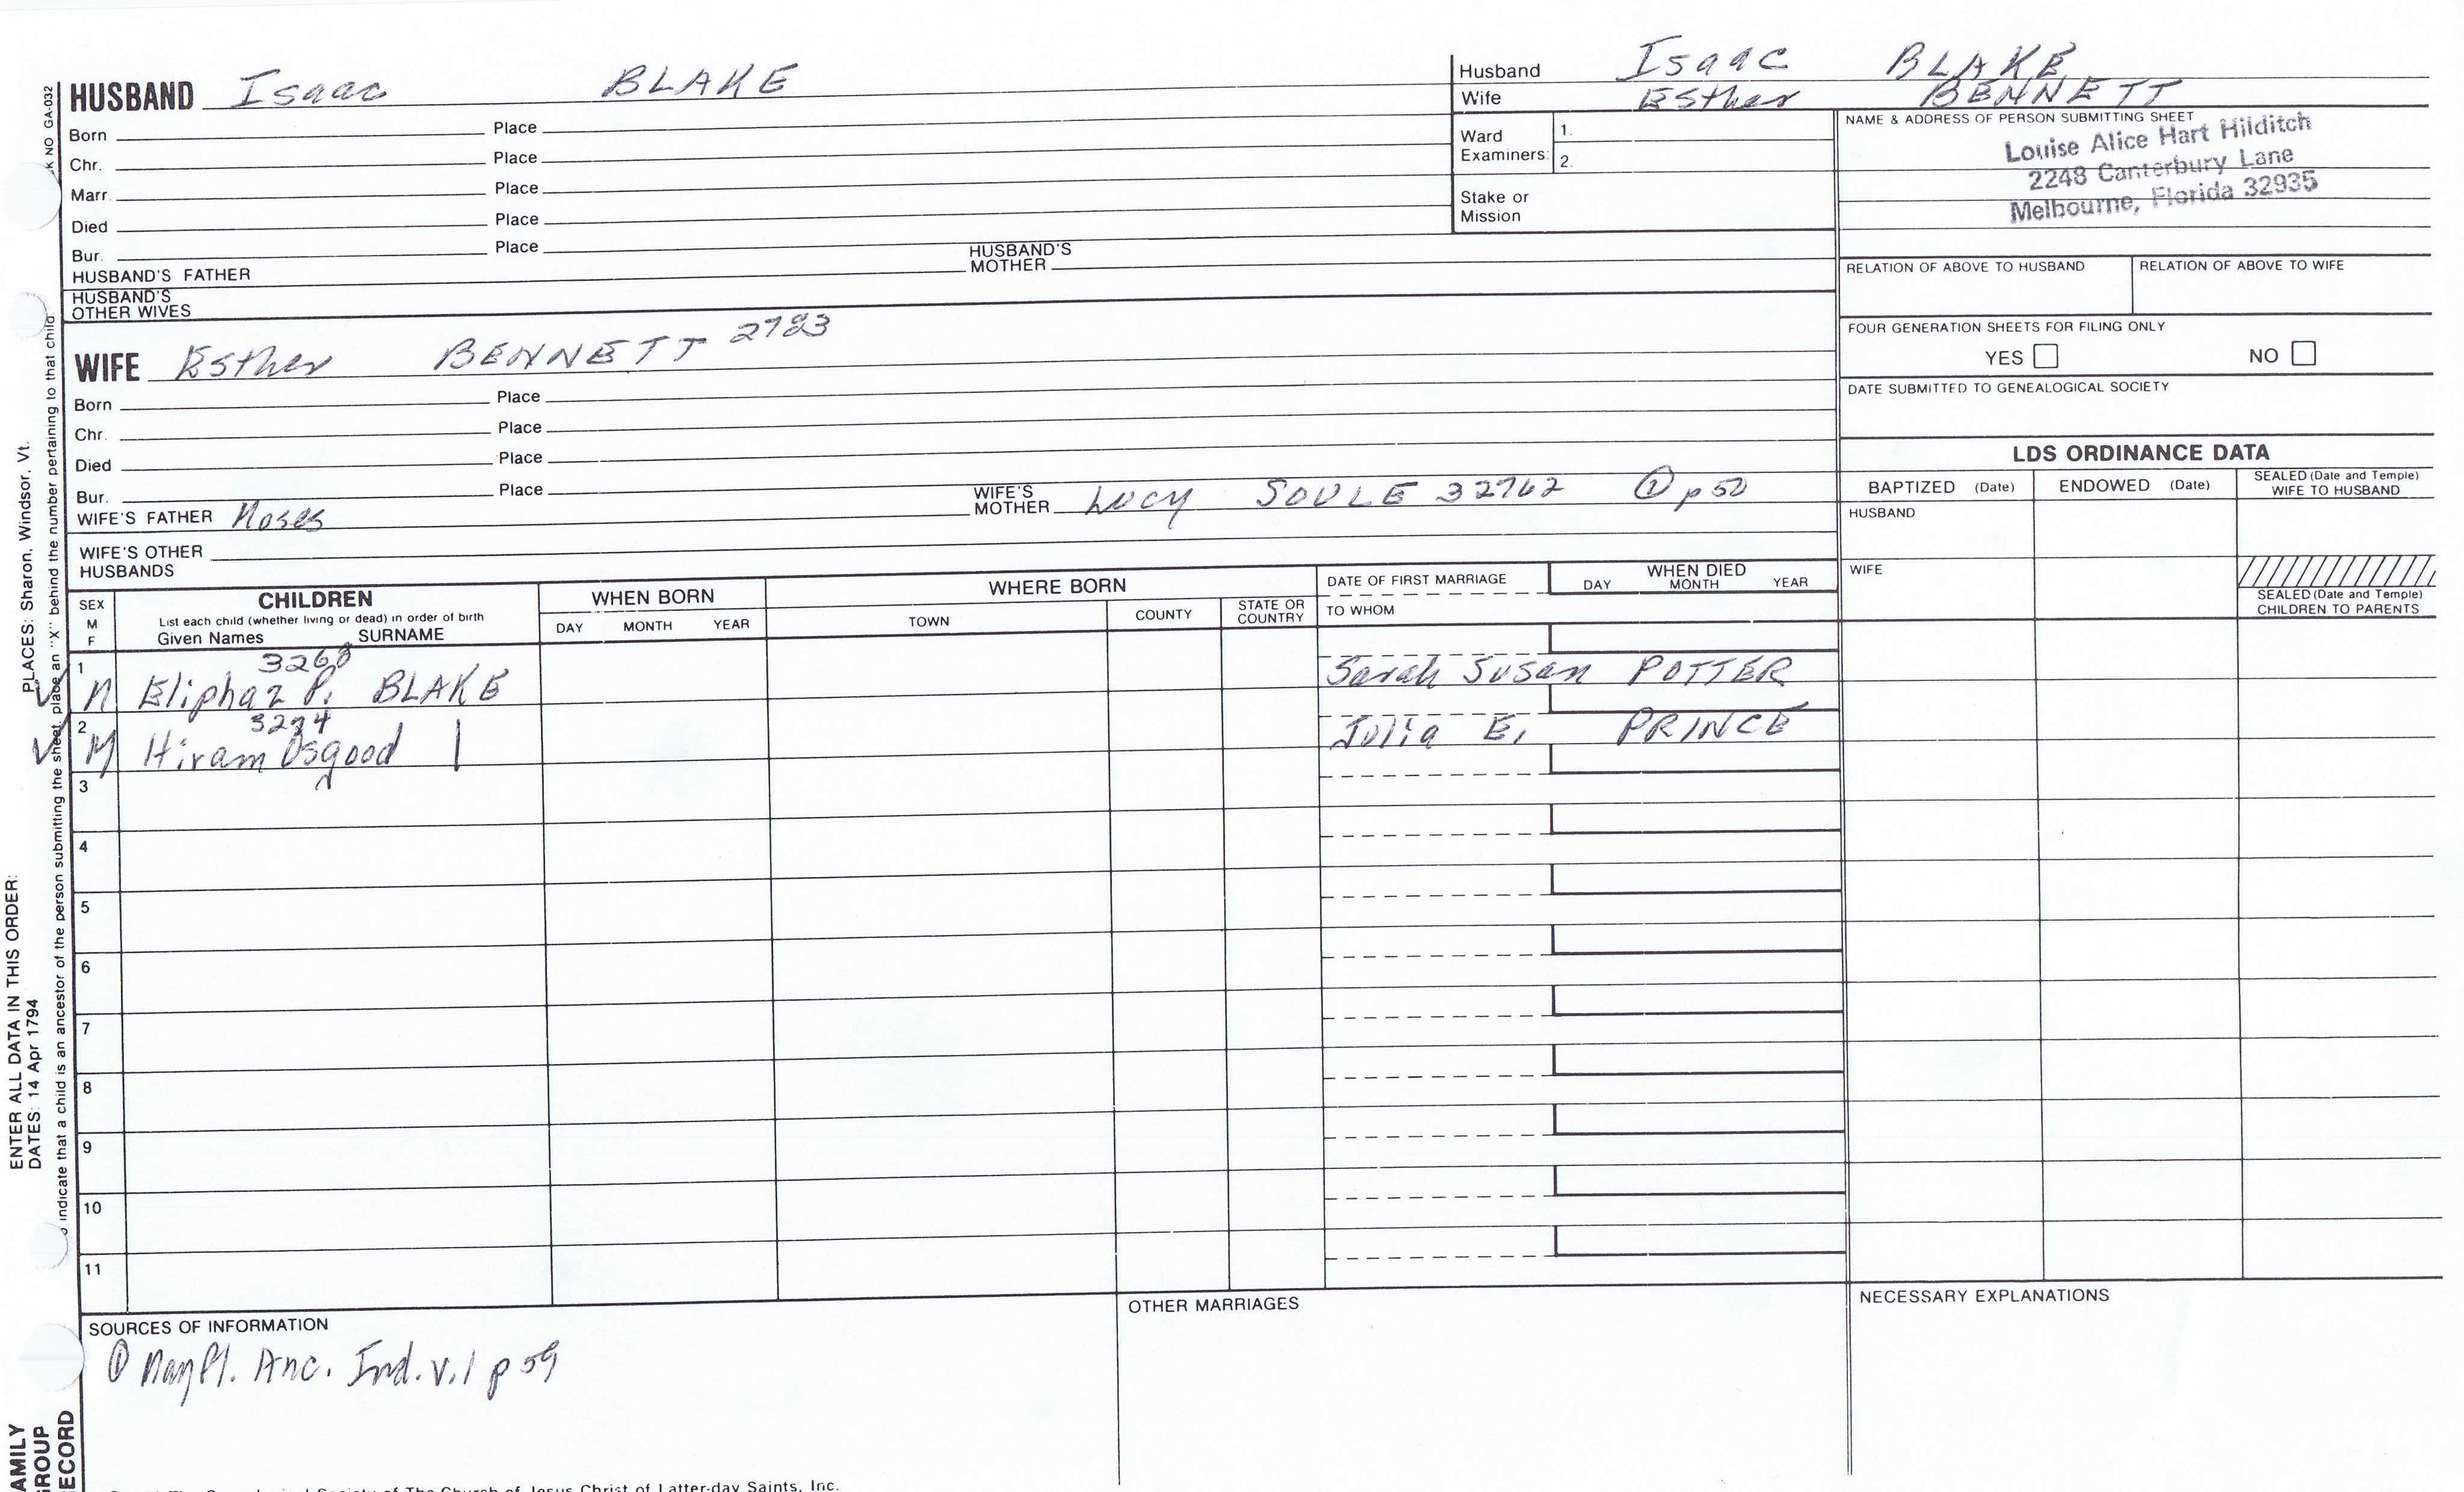 HUSBAND Isaac BLAKE
Born Place
Chr. Place
Marr. Place
Died Place
Bur. Place
HUSBAND'S FATHER HUSBAND'S MOTHER
HUSBAND'S OTHER WIVES
WIFE Esther BENNETT 2723
Born Place
Chr. Place
Died Place
Bur. Place
WIFE'S FATHER Moses WIFE'S MOTHER Lucy SOULE 32762 ① p 50
WIFE'S OTHER HUSBANDS
Husband Isaac BLAKE
Wife Esther BENNETT
Ward Examiners: 1.
2.
Stake or Mission
NAME & ADDRESS OF PERSON SUBMITTING SHEET
Louise Alice Hart Hilditch
2248 Canterbury Lane
Melbourne, Florida 32935
RELATION OF ABOVE TO HUSBAND RELATION OF ABOVE TO WIFE
FOUR GENERATION SHEETS FOR FILING ONLY
YES NO
DATE SUBMITTED TO GENEALOGICAL SOCIETY
LDS ORDINANCE DATA
BAPTIZED (Date) ENDOWED (Date) SEALED (Date and Temple) WIFE TO HUSBAND
HUSBAND
WIFE
SEALED (Date and Temple) CHILDREN TO PARENTS
SEX M F
CHILDREN
List each child (whether living or dead) in order of birth
Given Names SURNAME
WHEN BORN
DAY MONTH YEAR
WHERE BORN
TOWN COUNTY STATE OR COUNTRY
DATE OF FIRST MARRIAGE
TO WHOM
WHEN DIED
DAY MONTH YEAR
3268
1 M Eliphaz P. BLAKE Sarah Susan POTTER
2 M Hiram Osgood Julia E. PRINCE
3
4
5
6
7
8
9
10
11
SOURCES OF INFORMATION
① Mayfl. Anc. Ind. v.1 p 59
OTHER MARRIAGES
NECESSARY EXPLANATIONS
K NO GA-032
PLACES: Sharon, Windsor, Vt.
ENTER ALL DATA IN THIS ORDER:
DATES: 14 Apr 1794
o indicate that a child is an ancestor of the person submitting the sheet, place an "X" behind the number pertaining to that child.
AMILY
GROUP
ECORD
Society of The Church of Jesus Christ of Latter-day Saints, Inc.